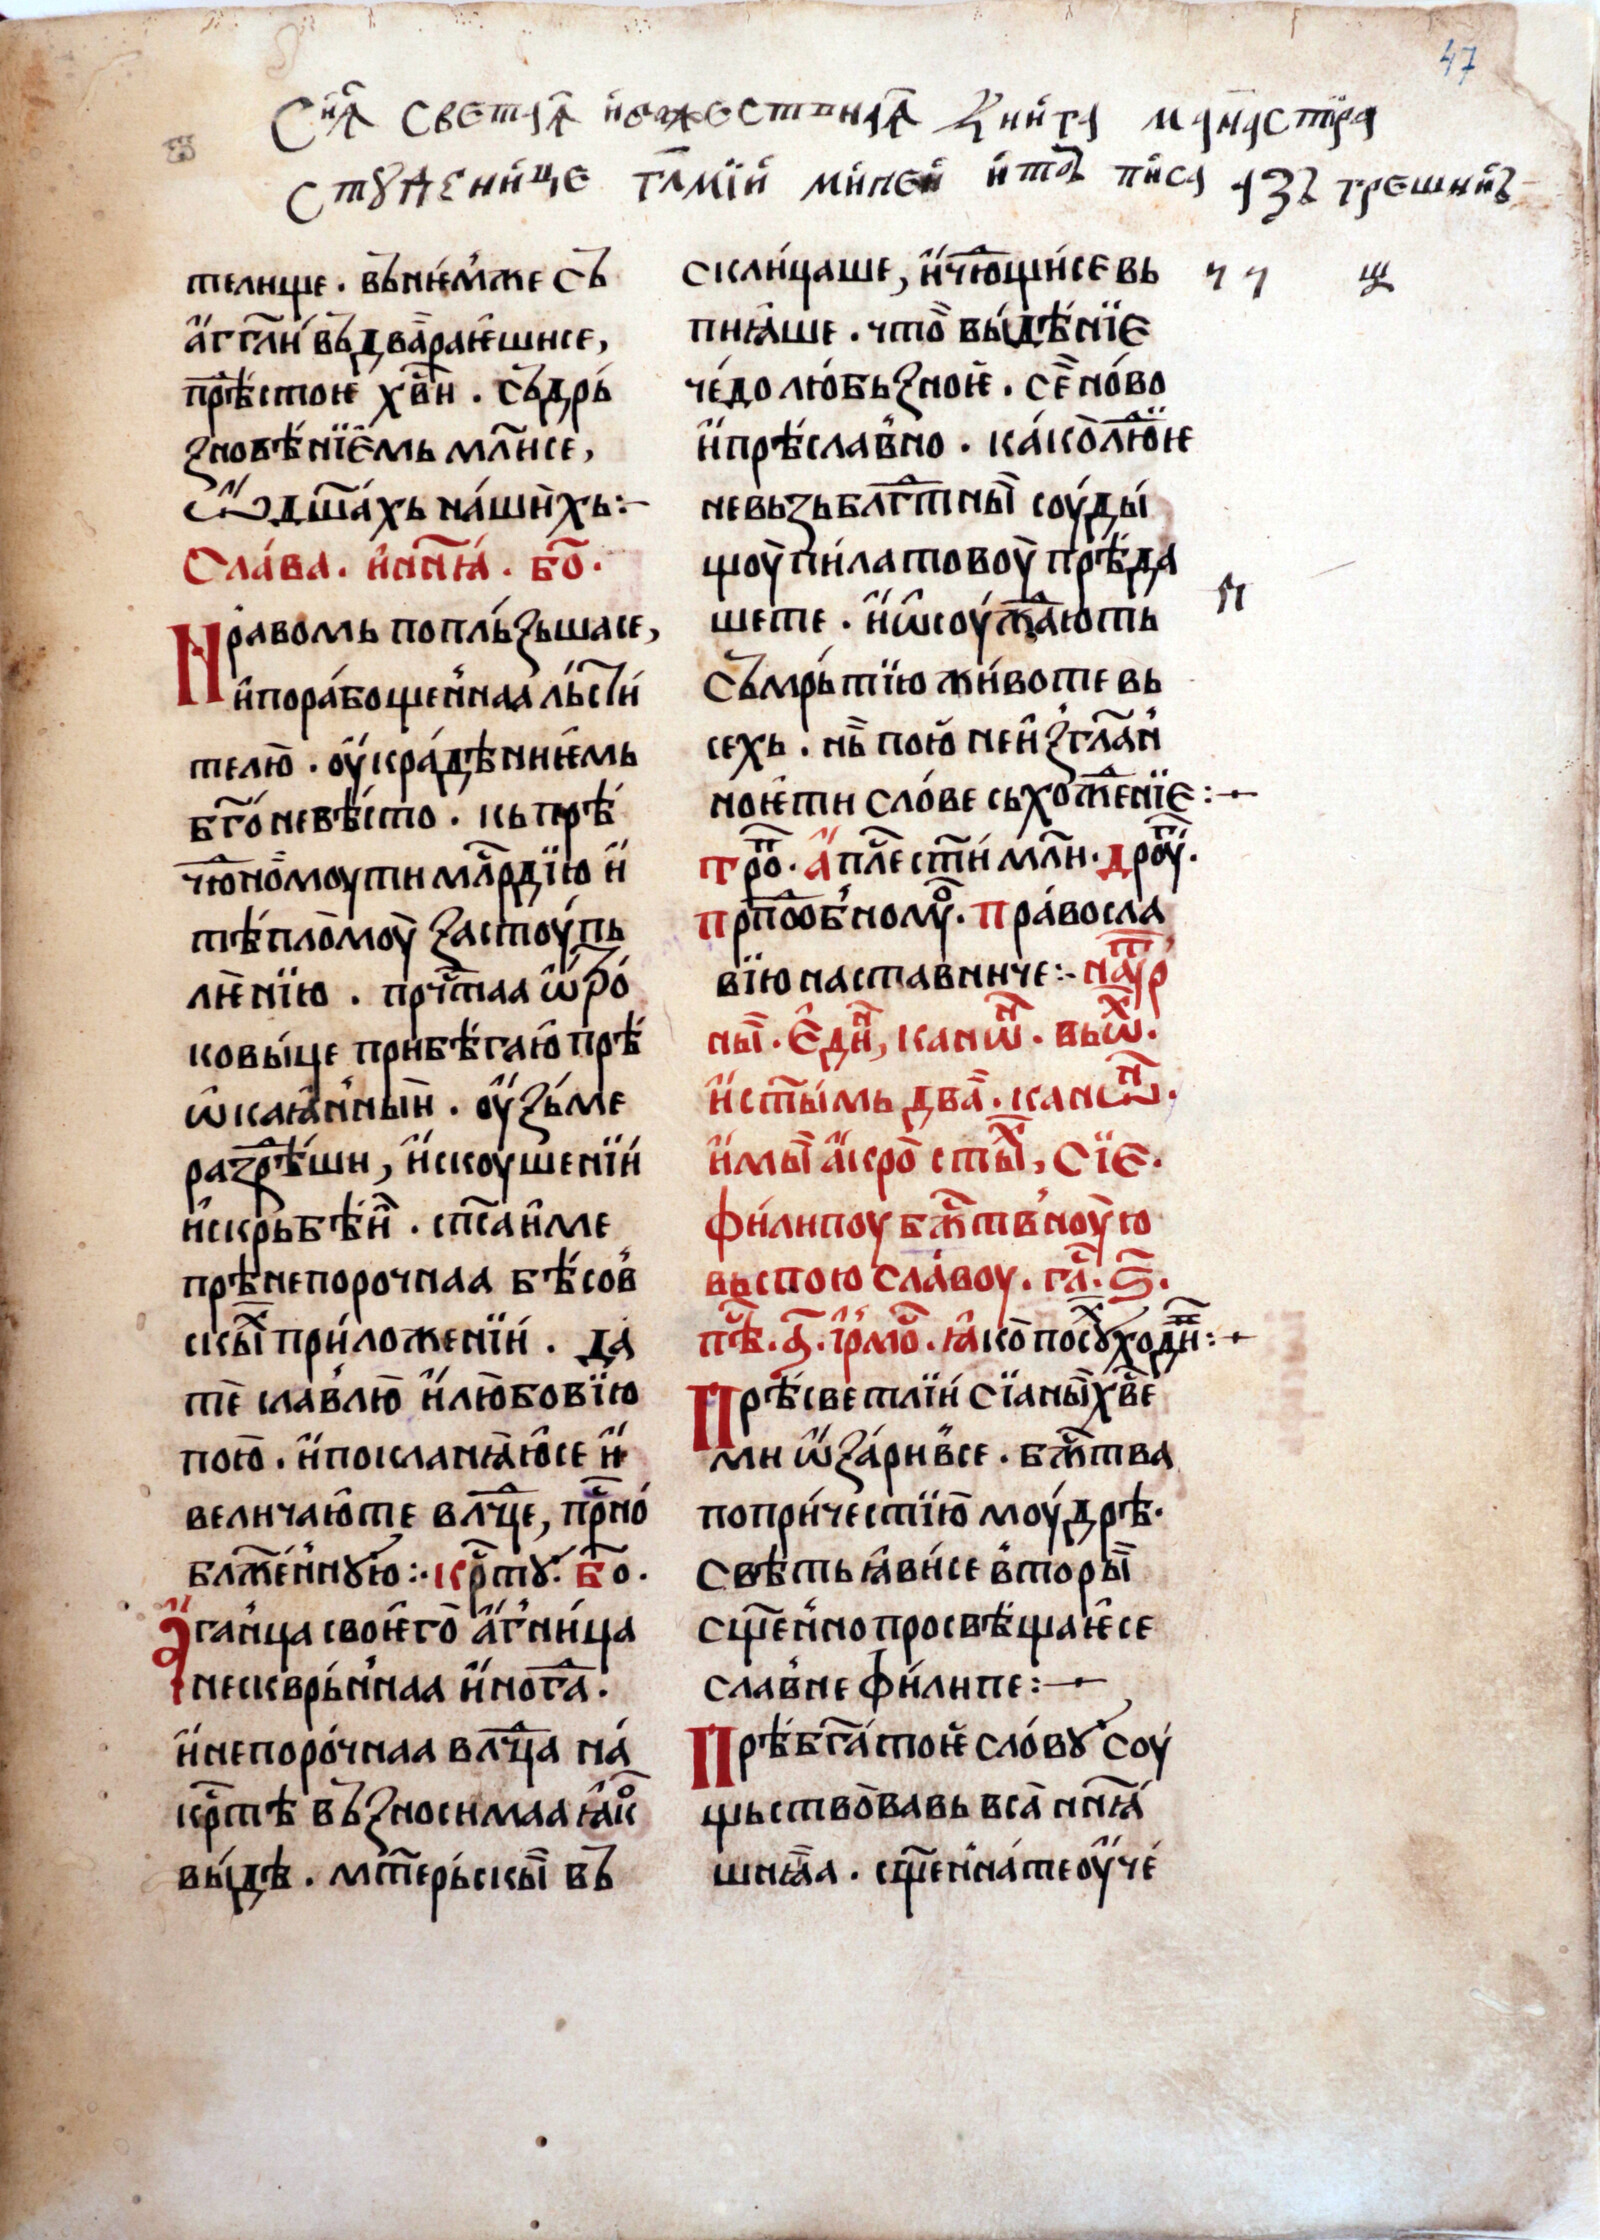 47
Сиꙗ светаꙗ и божествнаꙗ книга манастира
Стꙋденице глмїи минеи и тоъ писа азъ грешниъ
телище. въ нѥмже съ
агг҃ли въдвараѥшисе,
прѣстоѥ хв҃и. съдрь
ꙁновѣнїемь мл҃исе,
ѡ дш҃ахь нашихь:-
Слава. и нн҃ꙗ. бо҃.
Нравомь поплъꙁьшасе,
и порабощеннаа льсти
телю. оукрадѣниѥмь
бг҃оневѣсто. кь прѣ
чю҃номоу ти млрдїю и
тѣпломоу ꙁастоупь
лѥнїю. прчт҃аа ѿро
ковыце прибѣгаю прѣ
ѡкаꙗнныи. оуꙁьме
раꙁрѣши, искоушенїи
и скрьбѣи. сп҃саи ме
прѣнепорочнаа бѣсов
скы приложенїи. да
те славлю и любовїю
пою. и покланꙗюсе и
величаю те влчце, прно
блаженнꙋю:· крстꙋ. бо.
Ꙗганца своѥго агница
нескврьннаа иногa.
и непорочнаа влчца на
крстѣ въꙁносимаа ꙗко
выдѣ. мт҃ерьскы въ
склицаше, и чюдещисе вь
пиꙗше. что выдѣнїе
чедо любьꙁноѥ. се ново
и прѣславно. како людїѥ
не вьꙁьблгтны соуды
щоу пилатовоу прѣда
шете. и ѡсоужають
съмрьтїю животе вь
сехь. нь пою неиꙁглан
ноѥ ти слове сьхоженїе:-
Тро. апл҃е ст҃и мл҃и. дроу.
прпдобномꙋ. Правосла
вїю наставниче:- На оутр
ны. Един, канѡ. вьѡ.
и ст҃ымь два. канѡ.
имы акро сты, Сїе.
филипоу бжтвноую
вьспою славоу. гл. ѕ.
пѣ. а. ірмо. ꙗко по сꙋхꙋ ходи:-
Прѣсветлїи сїаны хв҃е
ми ѡꙁаривсе. бжтва
по причестїю моудрѣ.
Свѣть ꙗвисе вторы
сщ҃енно просвѣщаѥсе
славне филипе:-
Прѣбг҃атоѥ словꙋ соу
щьствовавь вса нн҃ꙗ
шнꙗа. сщ҃енна те оуче
ч ч щ